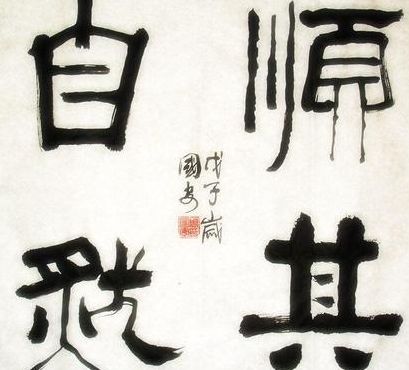 順其
自然
戊子歲
國安